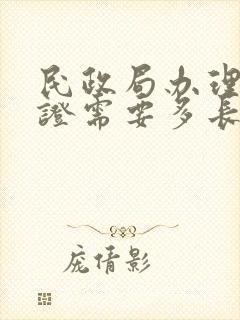 民政局办理
證需要多長
庞倩影